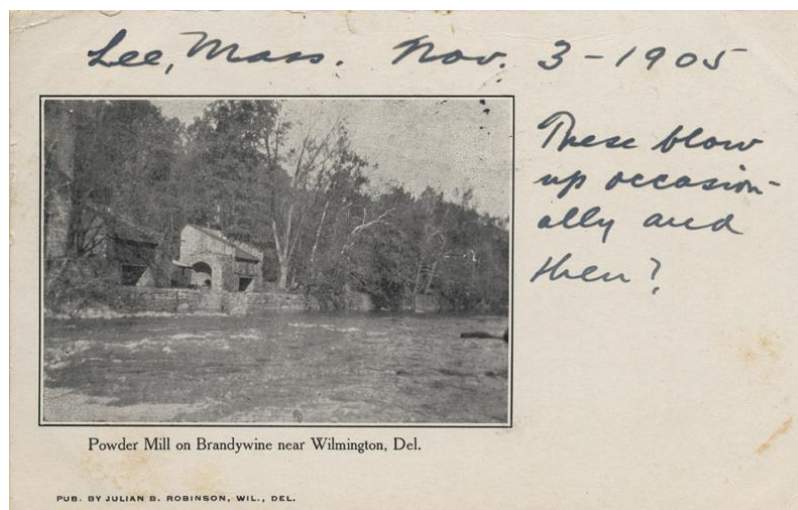 Lee, Mass. Nov. 3-1905
These blow
up occasion-
ally and
then?
Powder Mill on Brandywine near Wilmington, Del.
PUB. BY JULIAN B. ROBINSON, WIL., DEL.